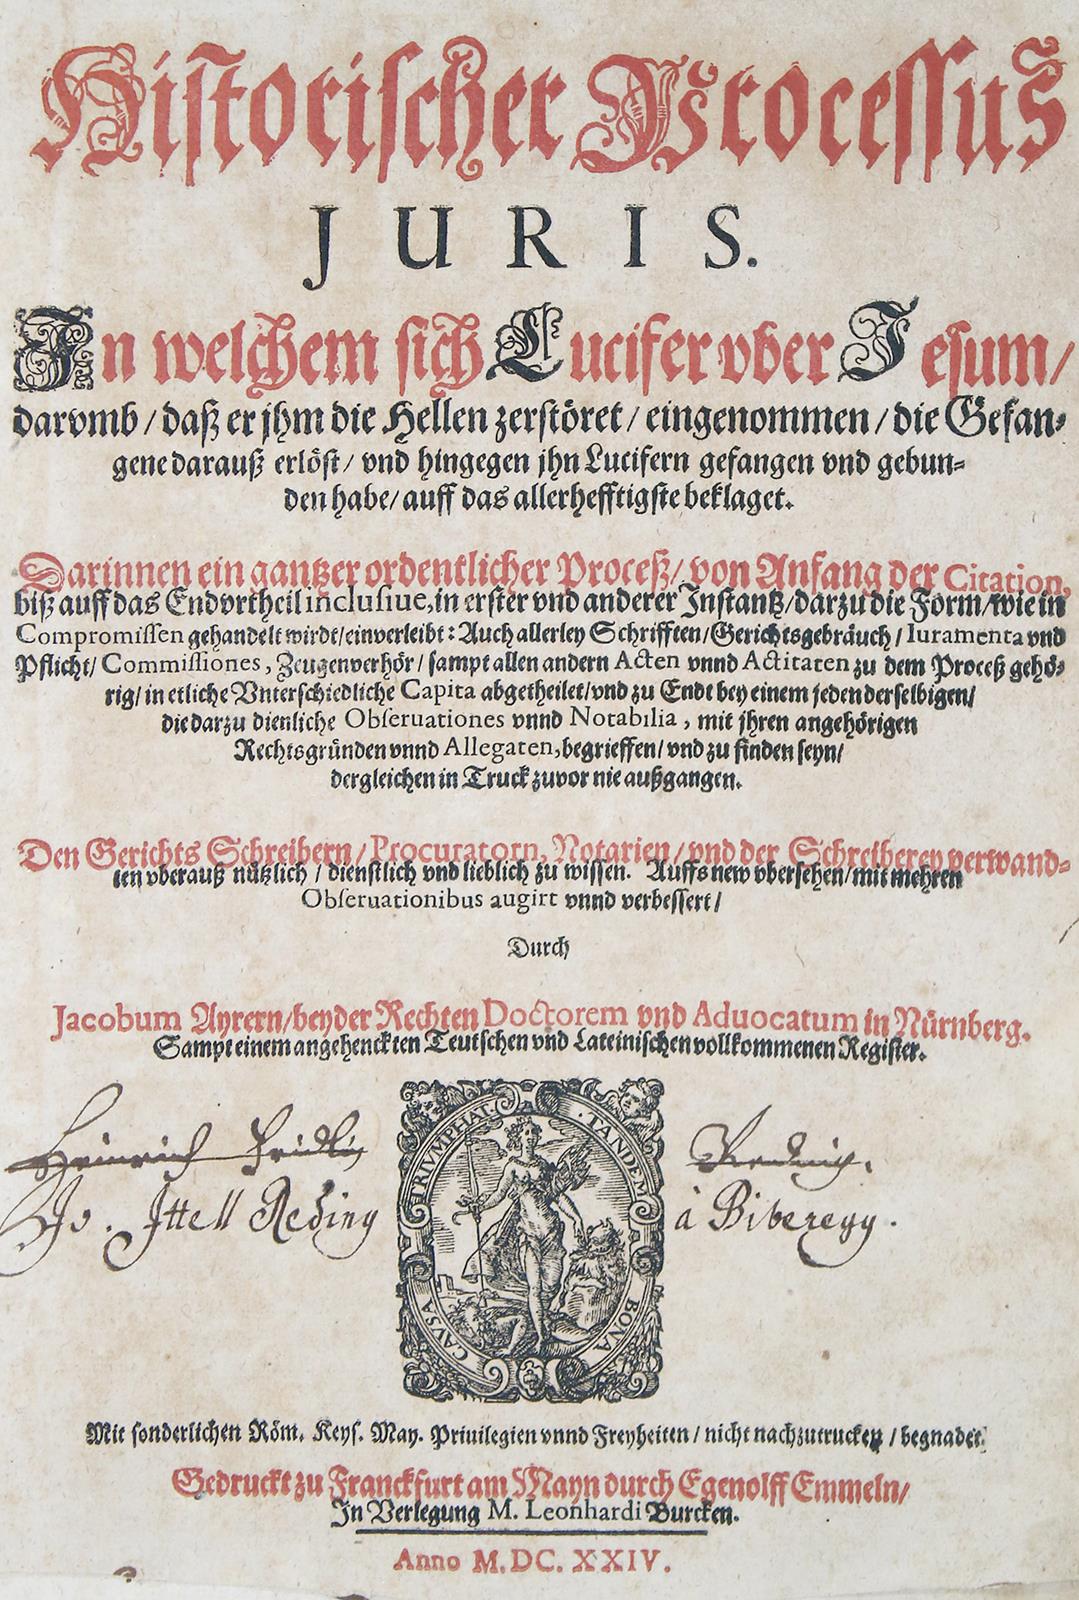 Historischer Processus
JURIS.
In welchem sich Lucifer vber Jesum /
darvmb / daß er jhm die Hellen zerstöret / eingenommen / die Gefan-
gene darauß erlöst / vnd hingegen jhn Lucifern gefangen vnd gebun-
den habe / auff das allerhefftigste beklaget.
Darinnen ein gantzer ordentlicher Proceß / von Anfang der Citation,
biß auff das Endvrtheil inclusiue, in erster vnd anderer Instantz / darzu die Form / wie in
Compromissen gehandelt wirdt / einverleibt : Auch allerley Schrifften / Gerichtsgebräuch / Iuramenta vnd
Pflicht / Commissiones, Zeugenverhör / sampt allen andern Acten vnnd Actitaten zu dem Proceß gehö-
rig / in etliche Vnterschiedliche Capita abgetheilet / vnd zu Endt bey einem jeden derselbigen /
die darzu dienliche Obseruationes vnnd Notabilia, mit jhren angehörigen
Rechtsgründen vnnd Allegaten, begrieffen / vnd zu finden seyn /
dergleichen in Truck zuvor nie außgangen.
Den Gerichts Schreibern / Procuratorn, Notarien / vnd der Schreiberey verwand-
ten vberauß nützlich / dienstlich vnd lieblich zu wissen. Auffs new vbersehen / mit mehren
Obseruationibus augirt vnnd verbessert /
Durch
Jacobum Ayrern / beyder Rechten Doctorem vnd Aduocatum in Nürnberg.
Sampt einem angehenckten Teutschen vnd Lateinischen vollkommenen Register.
Heinrich Fridlin
Jo. Ittell Reding à Biberegg.
CAVSA TRIVMPHAT TANDEM BONA
Mit sonderlichen Röm. Keys. May. Priuilegien vnnd Freyheiten / nicht nachzutrucken / begnadet.
Gedruckt zu Franckfurt am Mayn durch Egenolff Emmeln /
In Verlegung M. Leonhardi Burcken.
Anno M. DC. XXIV.